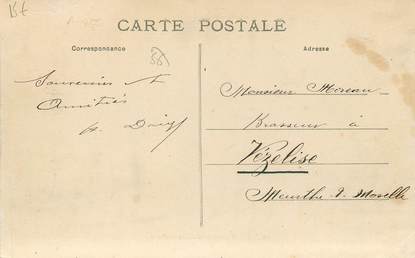 CARTE POSTALE
Correspondance
Adresse
55
Souvenirs et
Amitiés
Monsieur Moreau
Brasseur à
Vézelise
Meurthe & Moselle